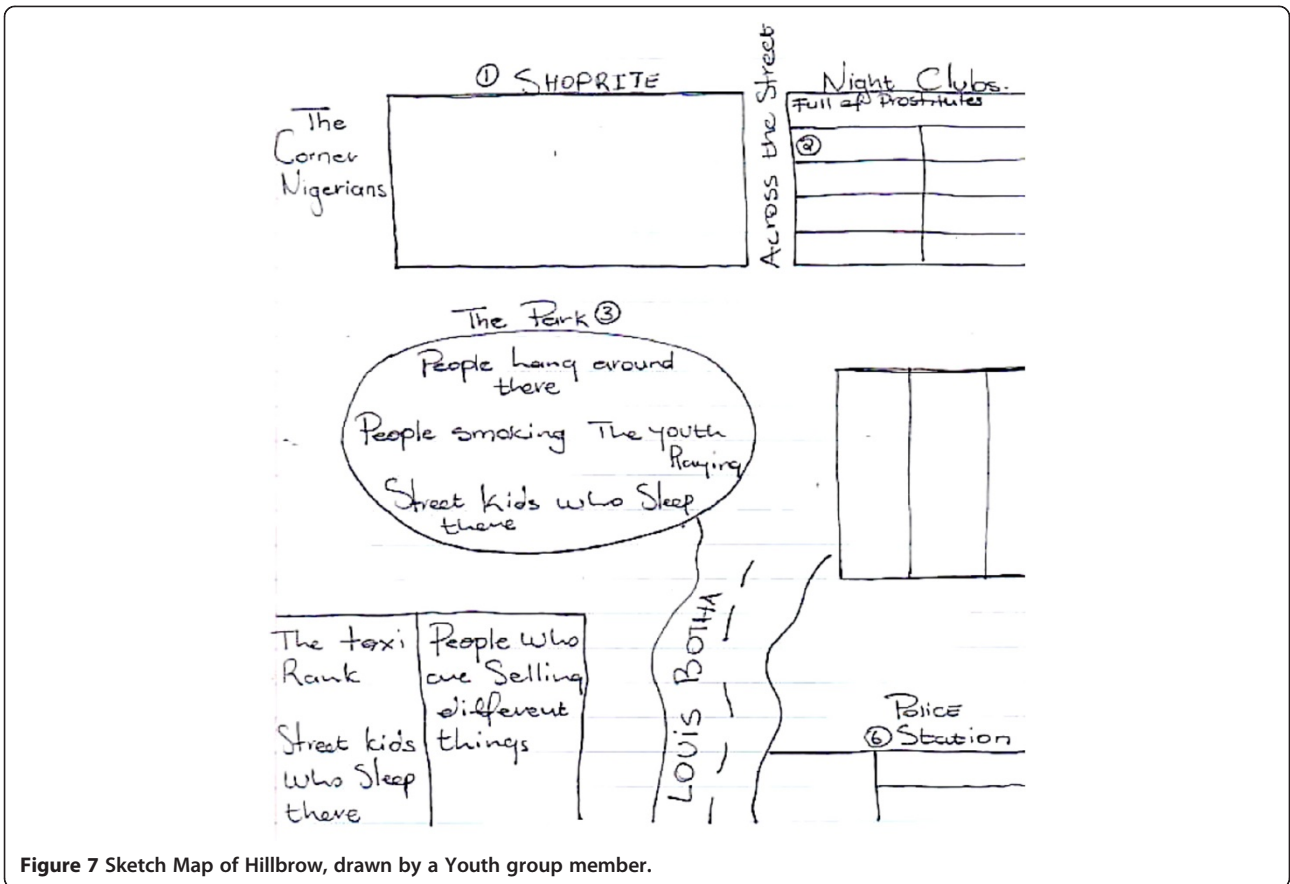 ① SHOPRITE
The
Corner
Nigerians
Across the Street
Night Clubs.
Full of Prostitutes
②
The Park ③
People hang around
there
People smoking The youth
Playing
Street kids who Sleep
there
The taxi
Rank
Street kids
who Sleep
there
People who
are Selling
different
things
LOUIS BOTHA
Police
⑥ Station
Figure 7 Sketch Map of Hillbrow, drawn by a Youth group member.